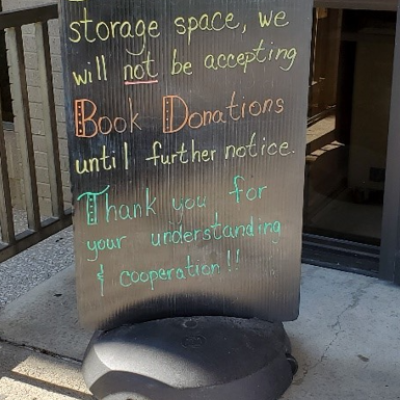 storage space, we
will not be accepting
Book Donations
until further notice.
Thank you for
your understanding
& cooperation!!